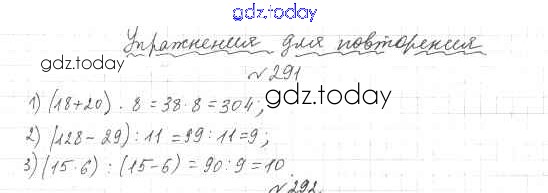 gdz.today
Упражнения для повторения
gdz.today
№291
1) (18+20) · 8 = 38·8 = 304;
gdz.today
2) (128 - 29) : 11 = 99 : 11 = 9;
3) (15·6) : (15-6) = 90 : 9 = 10
№292.